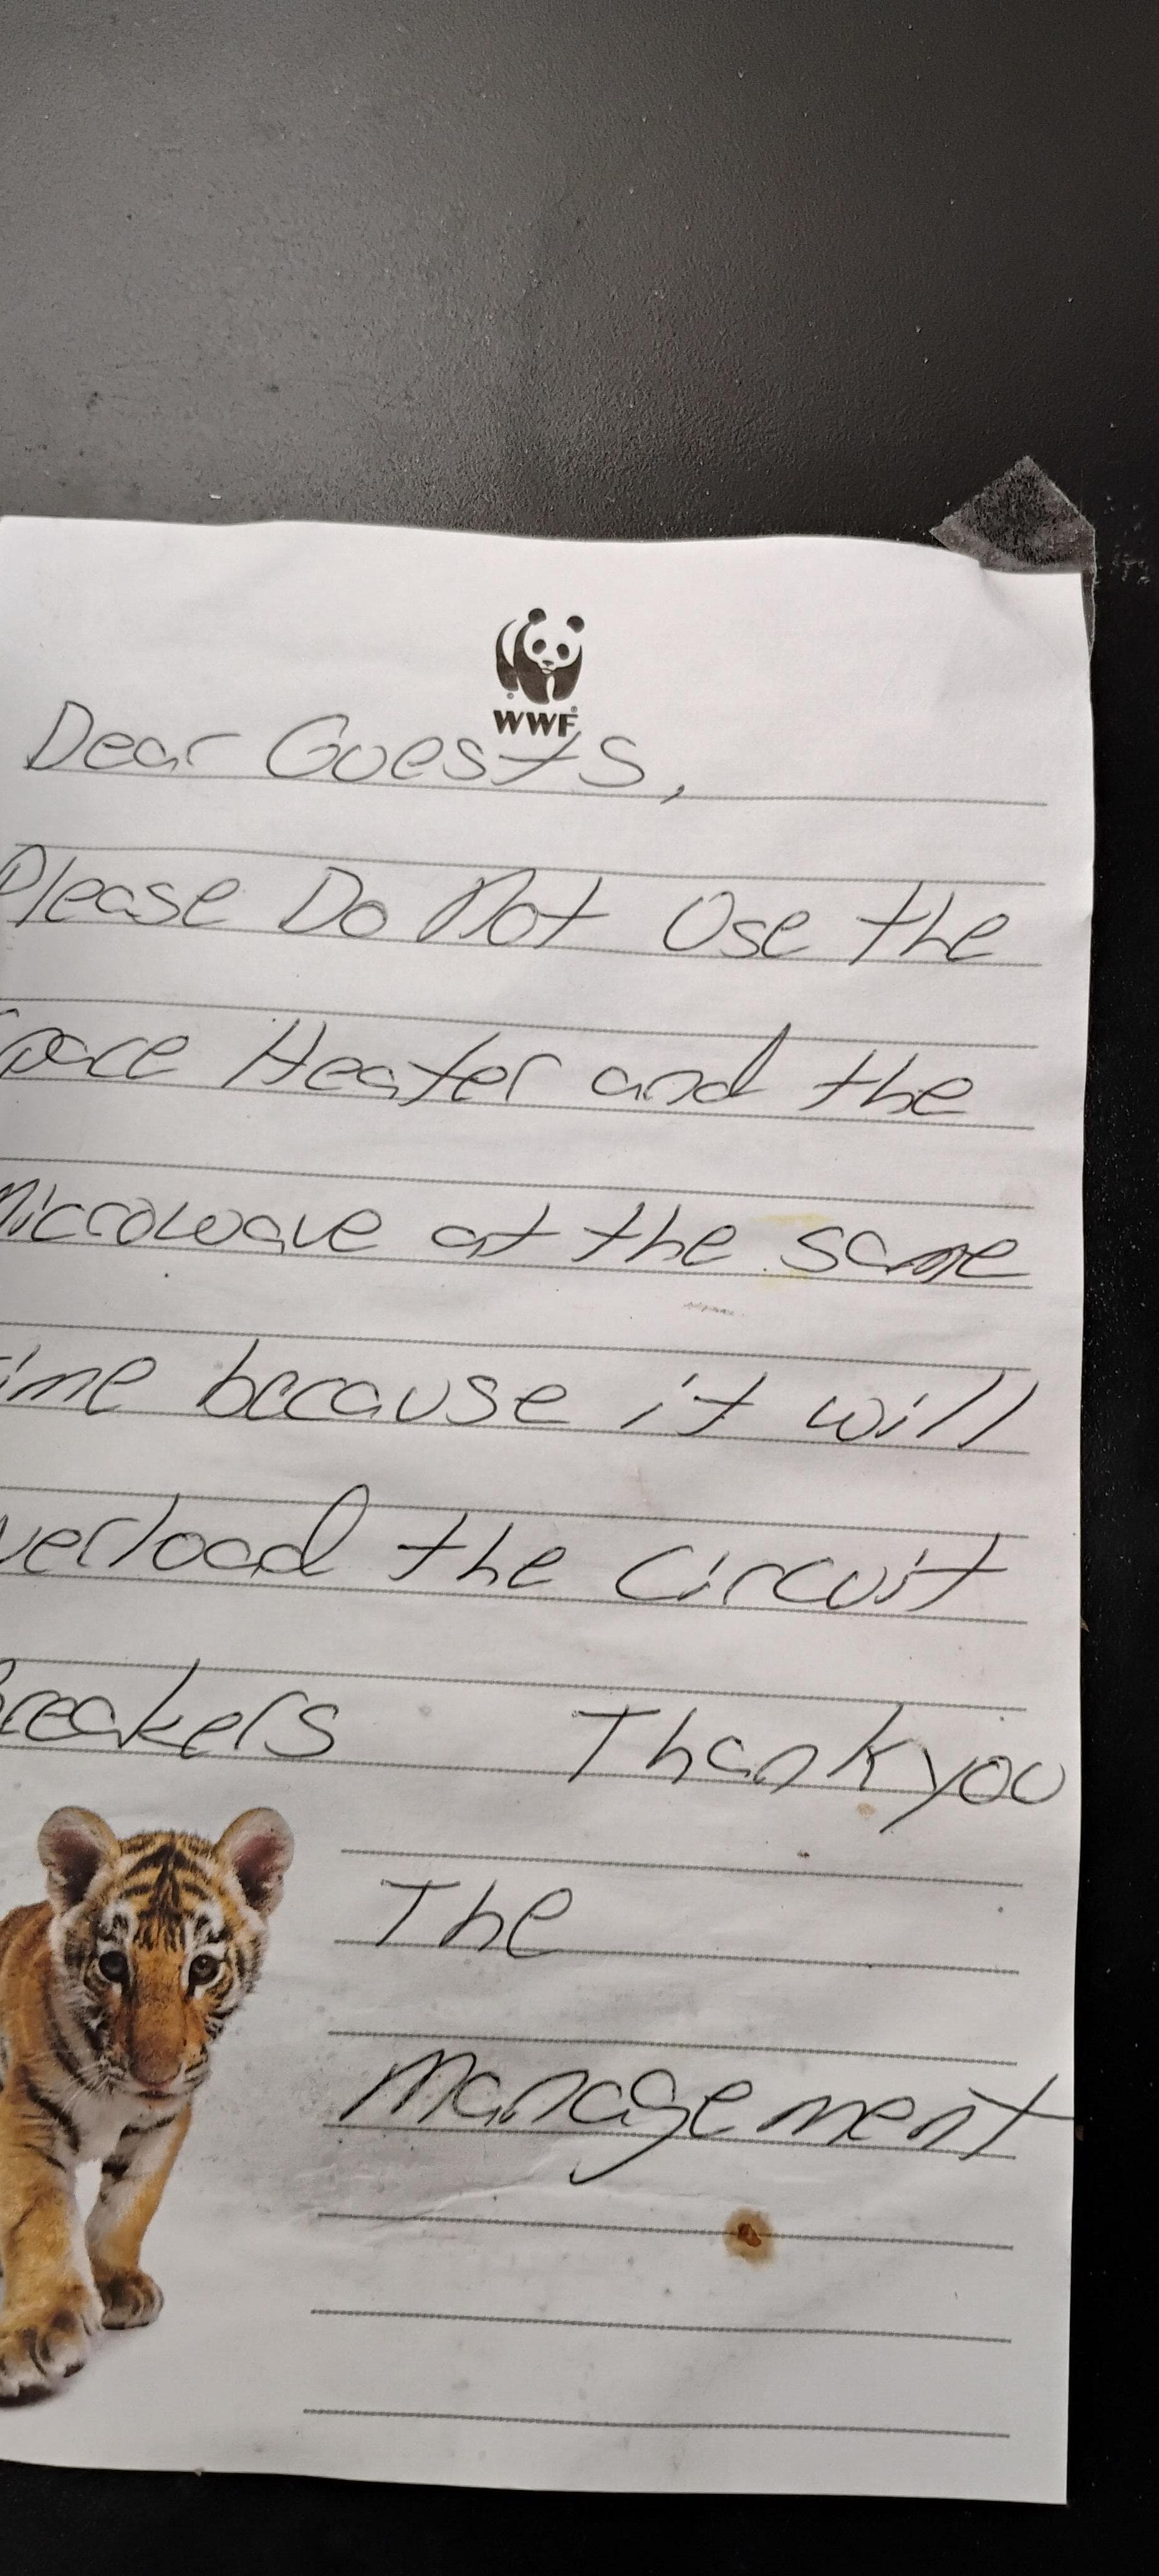 WWF
Dear Guests,
Please Do Not Use the
Space Heater and the
Microwave at the same
time because it will
overload the circuit
Breakers Thank you
The
Management